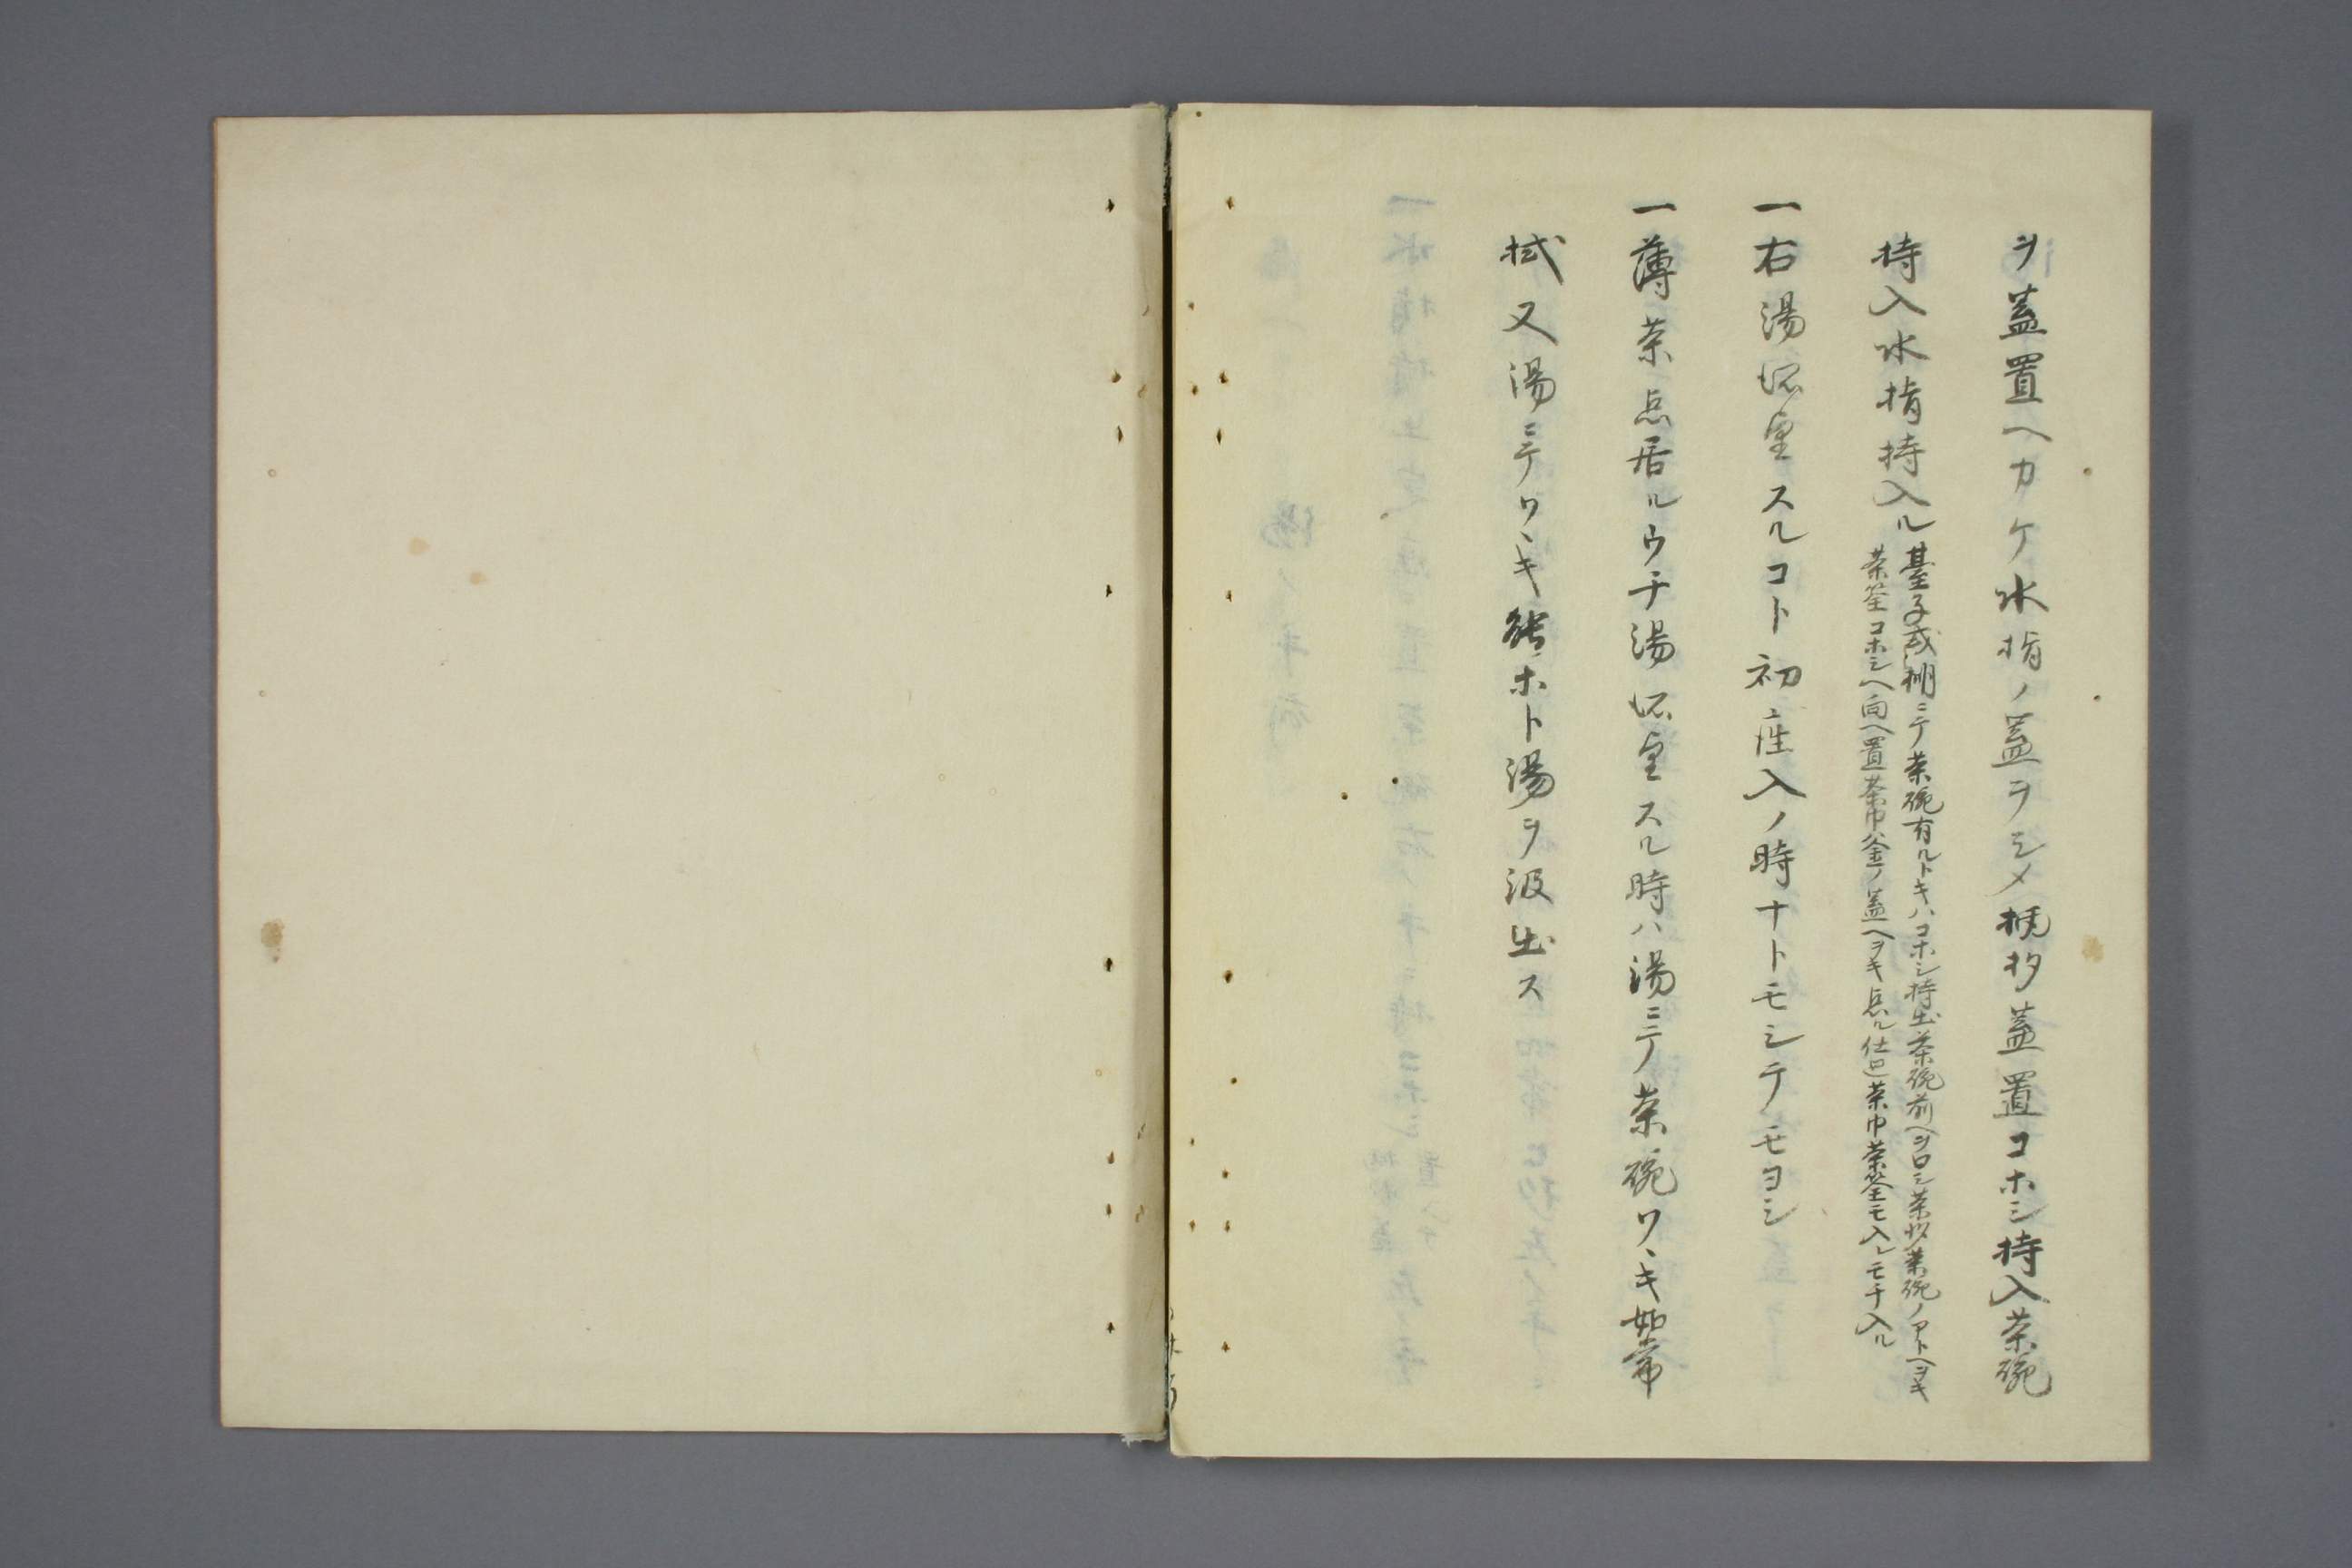 ヲ蓋置ヘカケ水指ノ蓋ヲシメ柄杓蓋置コホシ持入茶碗
持入水指持入ル
臺子或棚ニテ茶碗有ルトキハコホシ持出茶碗前ヘヲロシ茶杓茶碗ノアトヘヲキ
茶筌コホシヘ向ヘ置茶巾釜ノ蓋ヘヲキ点ル仕回茶巾茶筌モ入レモチ入ル
一右湯所望スルコト初座入ノ時ナトモシテモヨシ
一薄茶点居ルウチ湯所望スル時ハ湯ニテ茶碗ワヽキ如常
拭又湯ニテワヽキ能ホト湯ヲ汲出ス